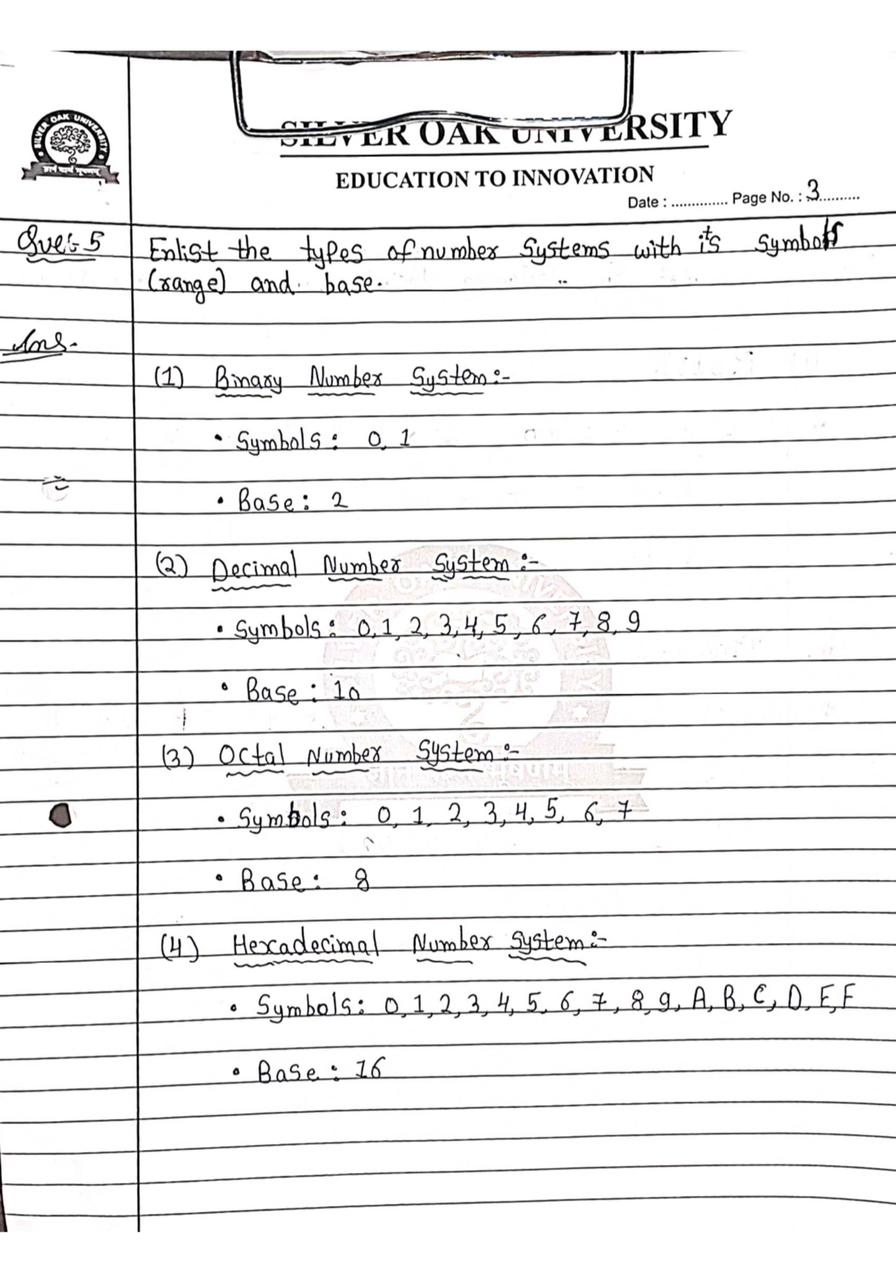 SILVER OAK UNIVERSITY
SILVER OAK UNIVERSITY
EDUCATION TO INNOVATION
Date : .............. Page No. : 3..........
Que:- 5 Enlist the types of number systems with it's symbols
(range) and base.
Ans.
(1) Binary Number System:-
• Symbols: 0, 1
• Base: 2
(2) Decimal Number System:-
• Symbols: 0, 1, 2, 3, 4, 5, 6, 7, 8, 9
• Base : 10
(3) Octal Number System:-
• Symbols: 0, 1, 2, 3, 4, 5, 6, 7
• Base: 8
(4) Hexadecimal Number System:-
• Symbols: 0, 1, 2, 3, 4, 5, 6, 7, 8, 9, A, B, C, D, E, F
• Base: 16